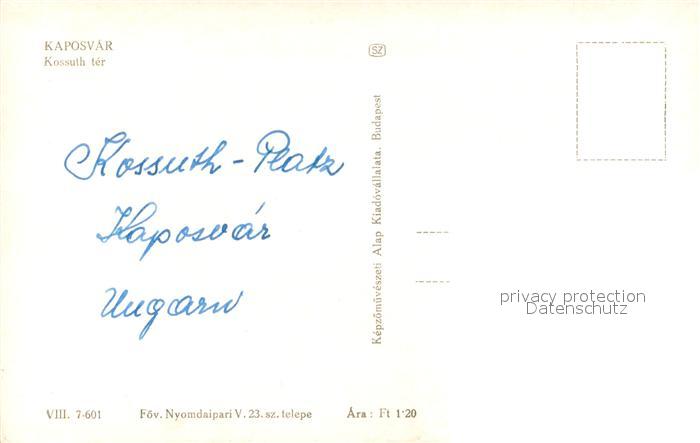 KAPOSVÁR
Kossuth tér
SZ
Kossuth-Platz
Kaposvár
Ungarn
Képzőművészeti Alap Kiadóvállalata, Budapest
privacy protection
Datenschutz
VIII. 7-601 Főv. Nyomdaipari V. 23. sz. telepe Ára: Ft 1·20